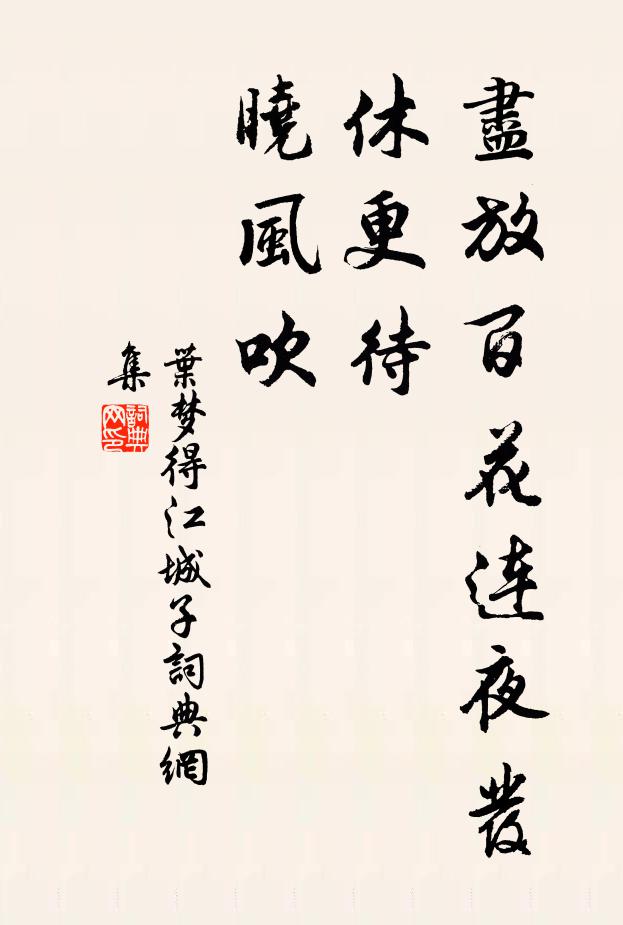 盡放百花連夜發
休更待
曉風吹
葉梦得江城子詞典網
集
詞典
网印